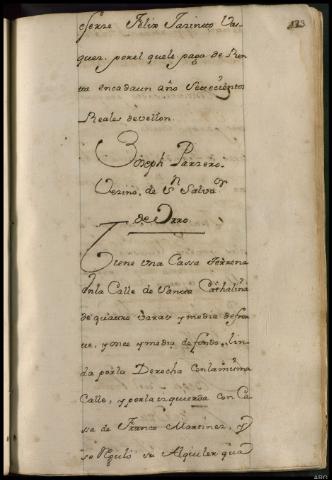 133
Felix Jazinto Vas-
quez. por el qual e pago de Ren-
ta en cada un año Settecientos
Reales de vellon.
Joseph Parrero
Vezino, de Sn Salvor
de Orro
Tiene una Cassa Terrena
en la Calle de Santa Cathalina
de quatro varas y media de fren-
te, y onze y media de fondo, lin-
da por la Derecha con la misma
Calle, y por la izquierda con Ca-
sa de Franco Martinez, y
se Reguló su Alquiler que